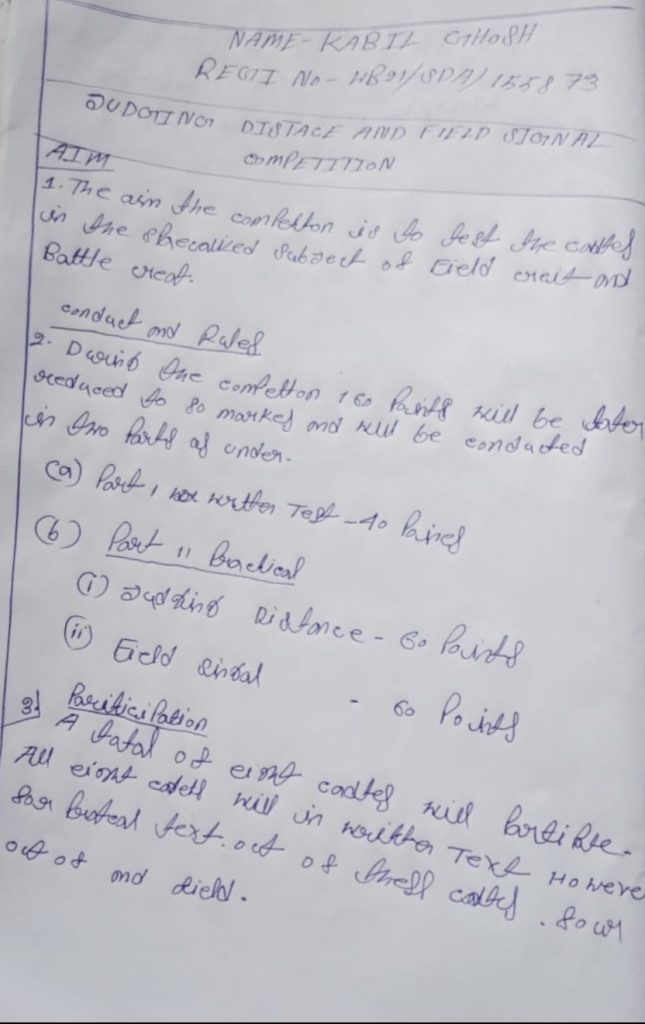 NAME-KABIL GHOSH
REGTI No- WB21/SDA/155873
JUDGING DISTACE AND FIELD SIGNAL
COMPETITION
AIM
1. The aim the compettion is to test the cadtes
in the specalised Subject of Field creat and
Battle creat.
conduct and Rules
2. During the compettion 160 Points will be later
reduced to 80 markes and will be conducted
in two Parts as under.
(a) Part 1 written Test - 40
(b) Part 11 Practical
(i) Judging Distance - 60 Points
(ii) Field singal - 60 Points
3) Pariticipation
A total of eight cadtes will
All eight cadets will in written Text Howeve
for text. out of these cadtes. four
out of and field.